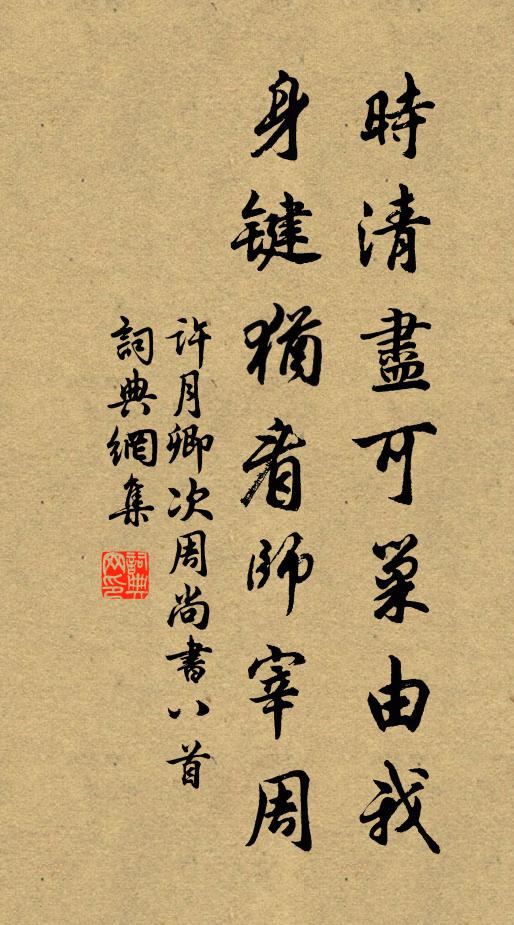 時清盡可巢由我
身键猶看師宰周
許月卿次周尚書八首
詞典網集
詞典網印